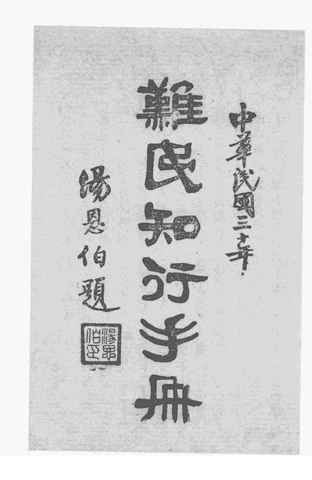 中華民國三十年
難民知行手冊
湯恩伯題
湯恩伯印